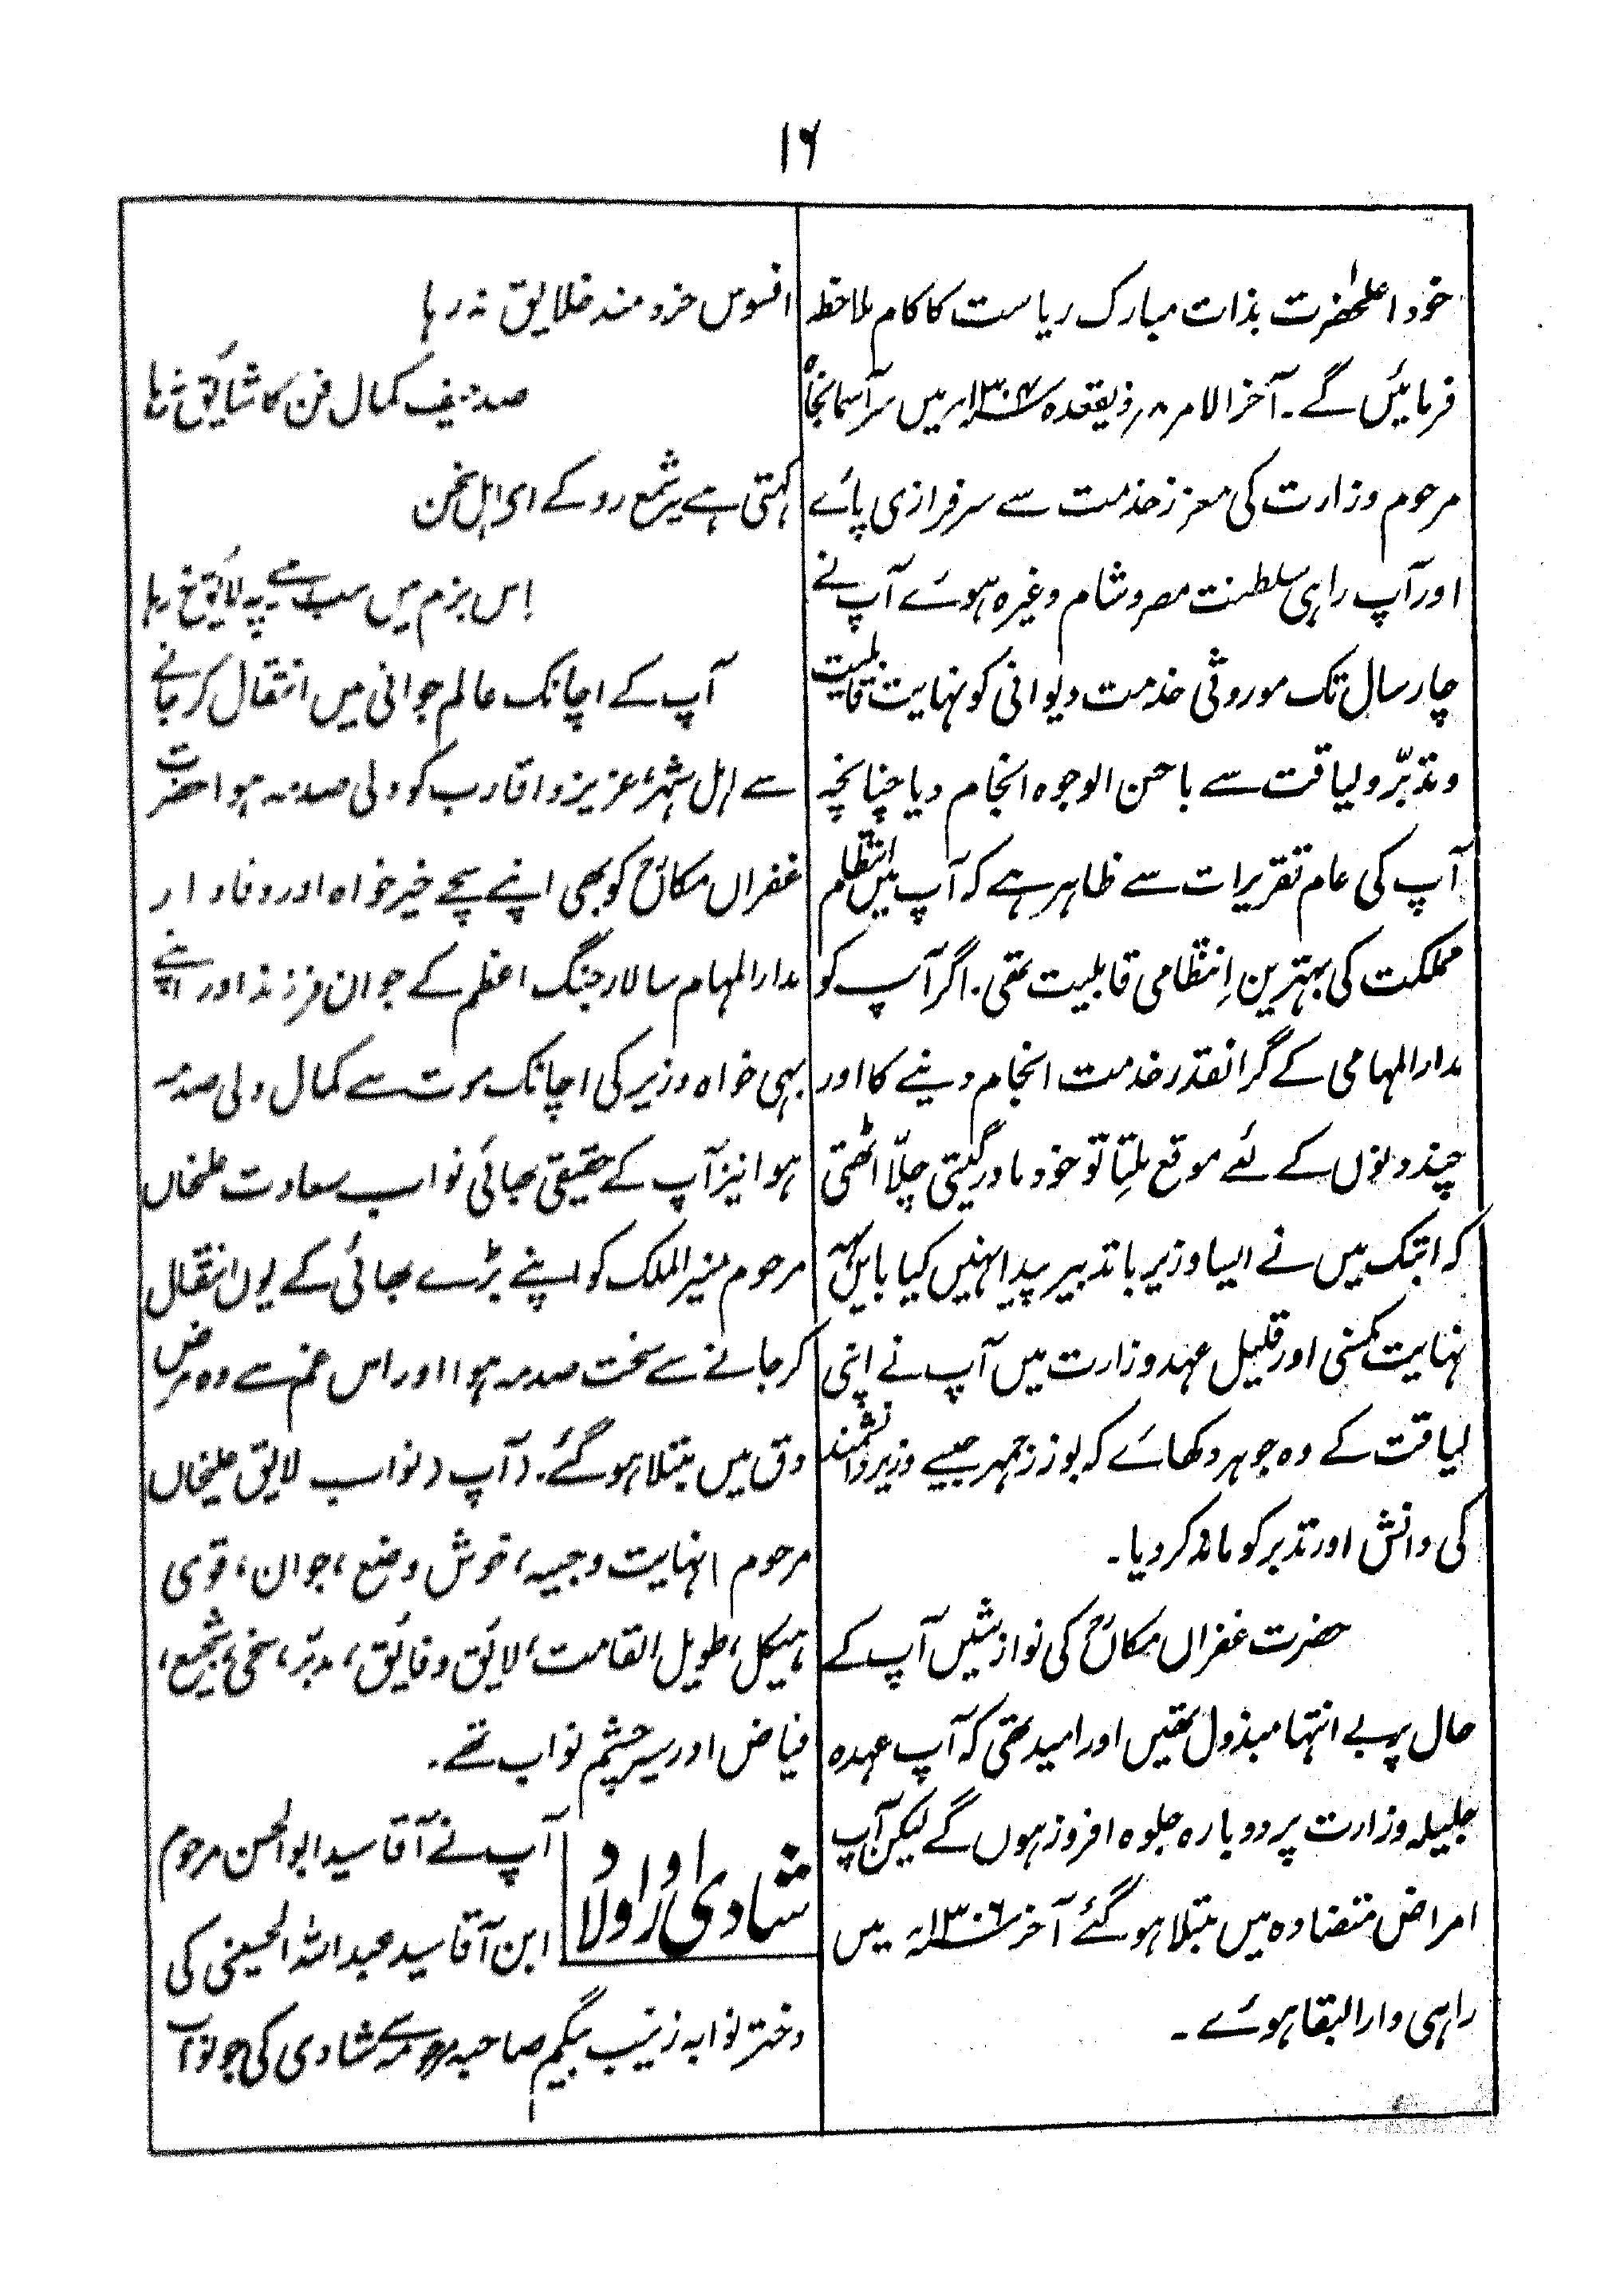 ۱۶
خود اعلٰحضرت بذات مبارک ریاست کا کام ملاحظہ
فرمائیں گے۔ آخر الامر ۸؍ ذیقعدہ ۱۳۰۴؁ھ میں سر آسمانجاہ
مرحوم وزارت کی معزز خدمت سے سرفرازی پائے
اور آپ راہی سلطنت مصر و شام وغیرہ ہوئے آپ نے
چار سال تک موروثی خدمت دیوانی کو نہایت قابلیت
و تدبّر و لیاقت سے باحسن الوجوہ انجام دیا چنانچہ
آپ کی عام تقریرات سے ظاہر ہے کہ آپ میں انتظام
مملکت کی بہترین اِنتظامی قابلیت تھی۔ اگر آپ کو
مدار المہامی کے گرانقدر خدمت انجام دینے کا اور
چند دنوں کے لئے موقع ملتِا تو خود مادر گیتی چلّا اٹھتی
کہ ابتک میں نے ایسا وزیر باتدبیر پیدا نہیں کیا بایں ہمہ
نہایت کمسنی اور قلیل عہد وزارت میں آپ نے اپنی
لیاقت کے وہ جوہر دکھائے کہ بوزرجمہر جیسے وزیر دانشمند
کی دانش اور تدبر کو ماند کر دیا۔
حضرت غفراں مکانؒ کی نوازشیں آپ کے
حال پر بے انتہا مبذول تھیں اور امید تھی کہ آپ عہدہ
جلیلہ وزارت پر دوبارہ جلوہ افروز ہوں گے لیکن آپ
امراض متضادہ میں مبتلا ہو گئے آخر ۱۳۰۶؁ھ میں
راہی دار البقا ہوئے۔
افسوس خردمند خلایق نہ رہا
صد حیف کمال فن کا شائق نرہا
کہتی ہے یہ شمع رو کے اے اہل سخن
اِس بزم میں سب ہے پہ لائق نرہا
آپ کے اچانک عالم جوانی میں انتقال کر جانے
سے اہل شہر، عزیز و اقارب کو دلی صدمہ ہوا حضرت
غفراں مکانؒ کو بھی اپنے سچے خیر خواہ اور وفادار
مدار المہام سالار جنگ اعظم کے جوان فرزند اور اپنے
بہی خواہ وزیر کی اچانک موت سے کمال دلی صدمہ
ہوا نیز آپ کے حقیقی بھائی نواب سعادت علیخاں
مرحوم منیر الملک کو اپنے بڑے بھائی کے یوں انتقال
کر جانے سے سخت صدمہ ہوا اور اس غم سے وہ مرض
دق میں مبتلا ہو گئے۔ (آپ (نواب لایق علیخاں
مرحوم) نہایت وجیہہ، خوش وضع، جوان، قوی
ہیکل، طویل القامت، لائق و فائق، مدبّر، سخی، شجیع،
فیاض اور سیر چشم نواب تھے۔
شادی اور اولاد
آپ نے آقا سید ابوالحسن مرحوم
ابن آقا سید عبداللہ الحسینی کی
دختر نوابہ زینب بیگم صاحبہ مرحومہ سے شادی کی جو نواب